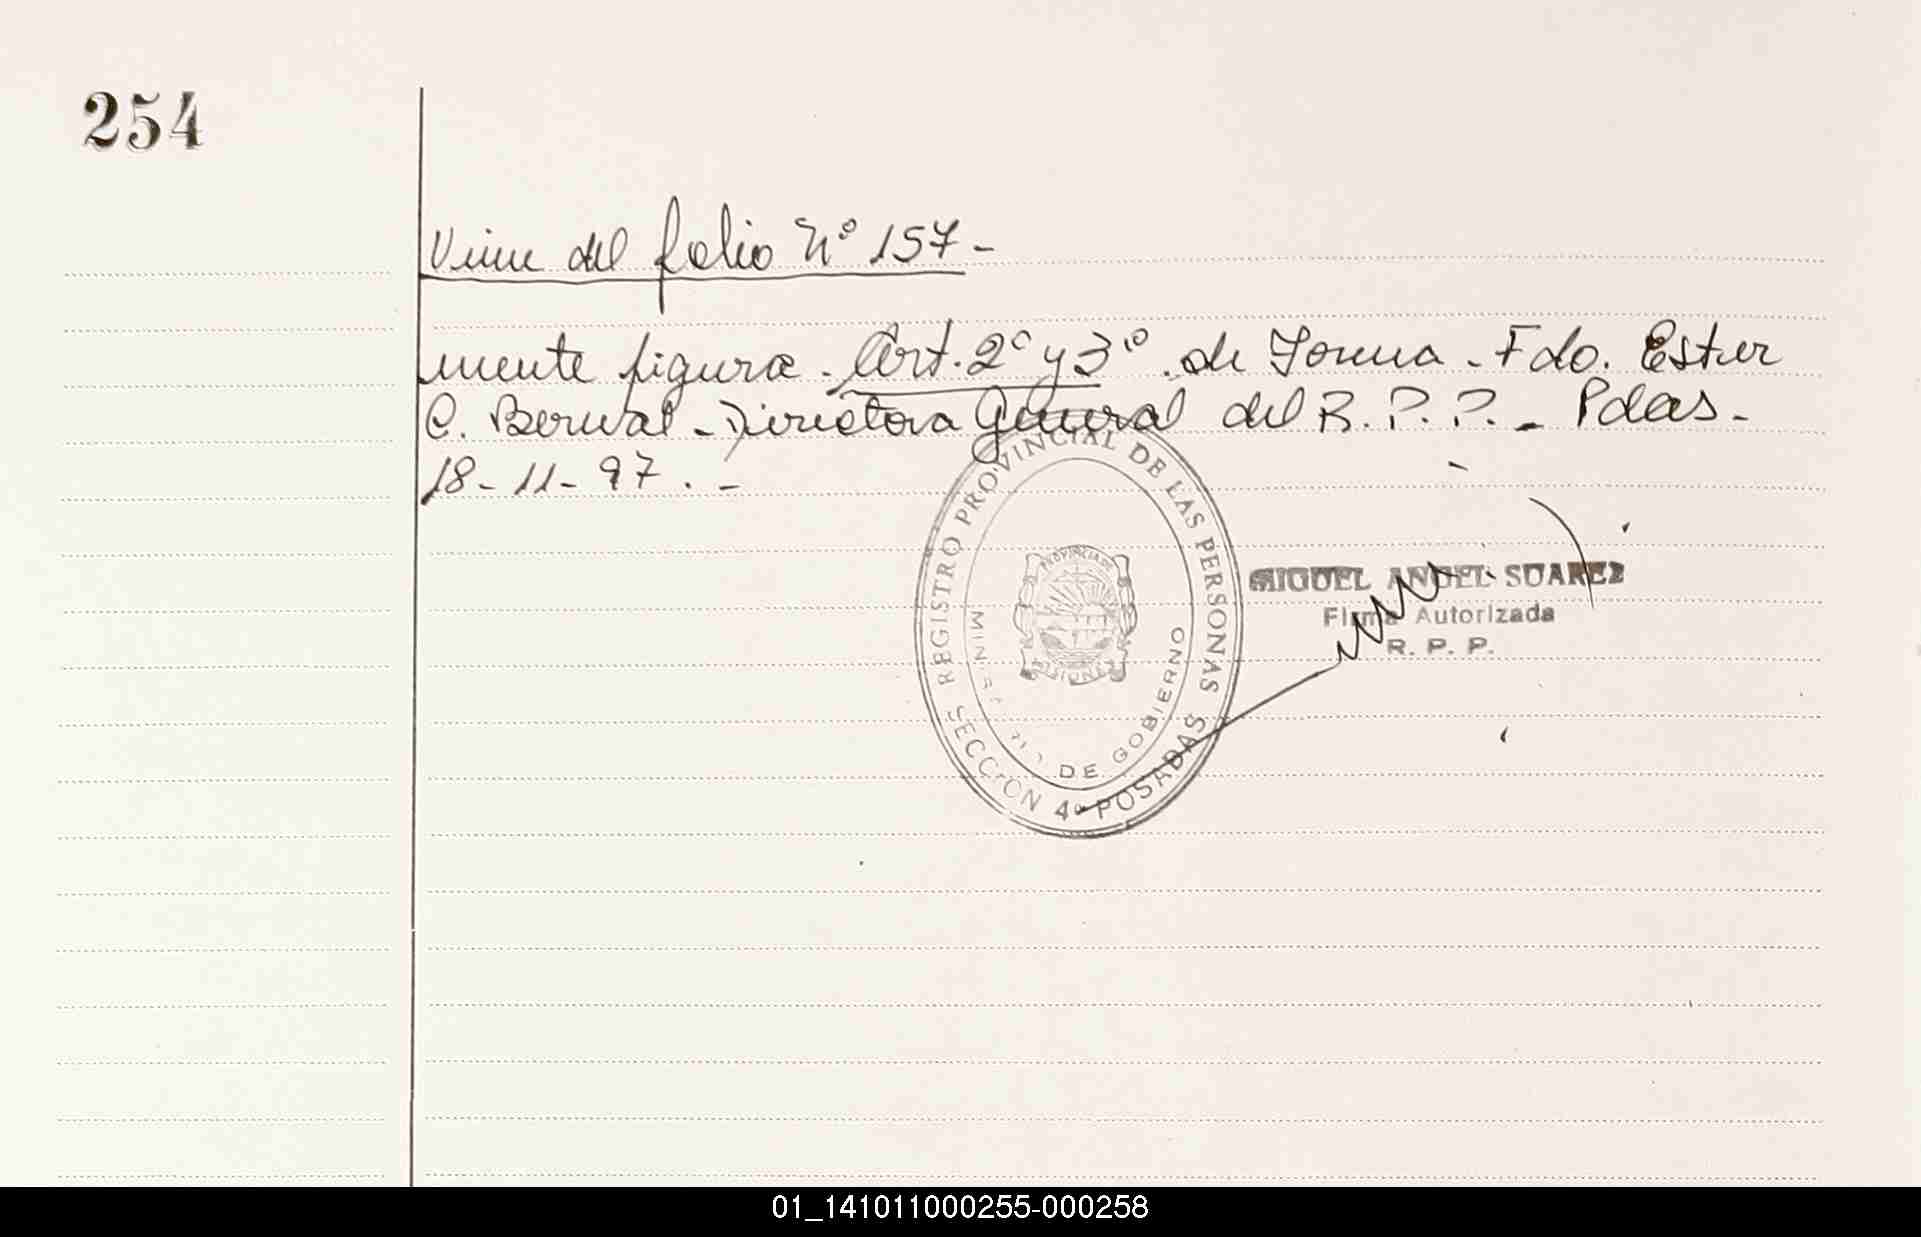 254
Viene del folio Nº 157-
mente figura. Art. 2º y 3º de forma. Fdo. Ester
C. Bernal - Directora General del R.P.P. - Pdas -
18-11-97. -
REGISTRO PROVINCIAL DE LAS PERSONAS
SECCION 4º POSADAS
DE GOBIERNO
PROVINCIA DE
MISIONES
MIGUEL ANGEL SUAREZ
Firma Autorizada
R. P. P.
01_141011000255-000258